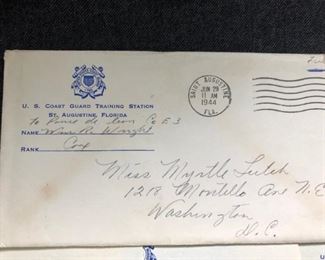 U. S. COAST GUARD TRAINING STATION
ST. AUGUSTINE, FLORIDA
To Ponce de leon Co E 3
NAME Wright
RANK Cox
SAINT AUGUSTINE
JUN 29
11 AM
1944
FLA.
Miss Myrtle
1218 Montello Ave N.E.
Washington
D.C.